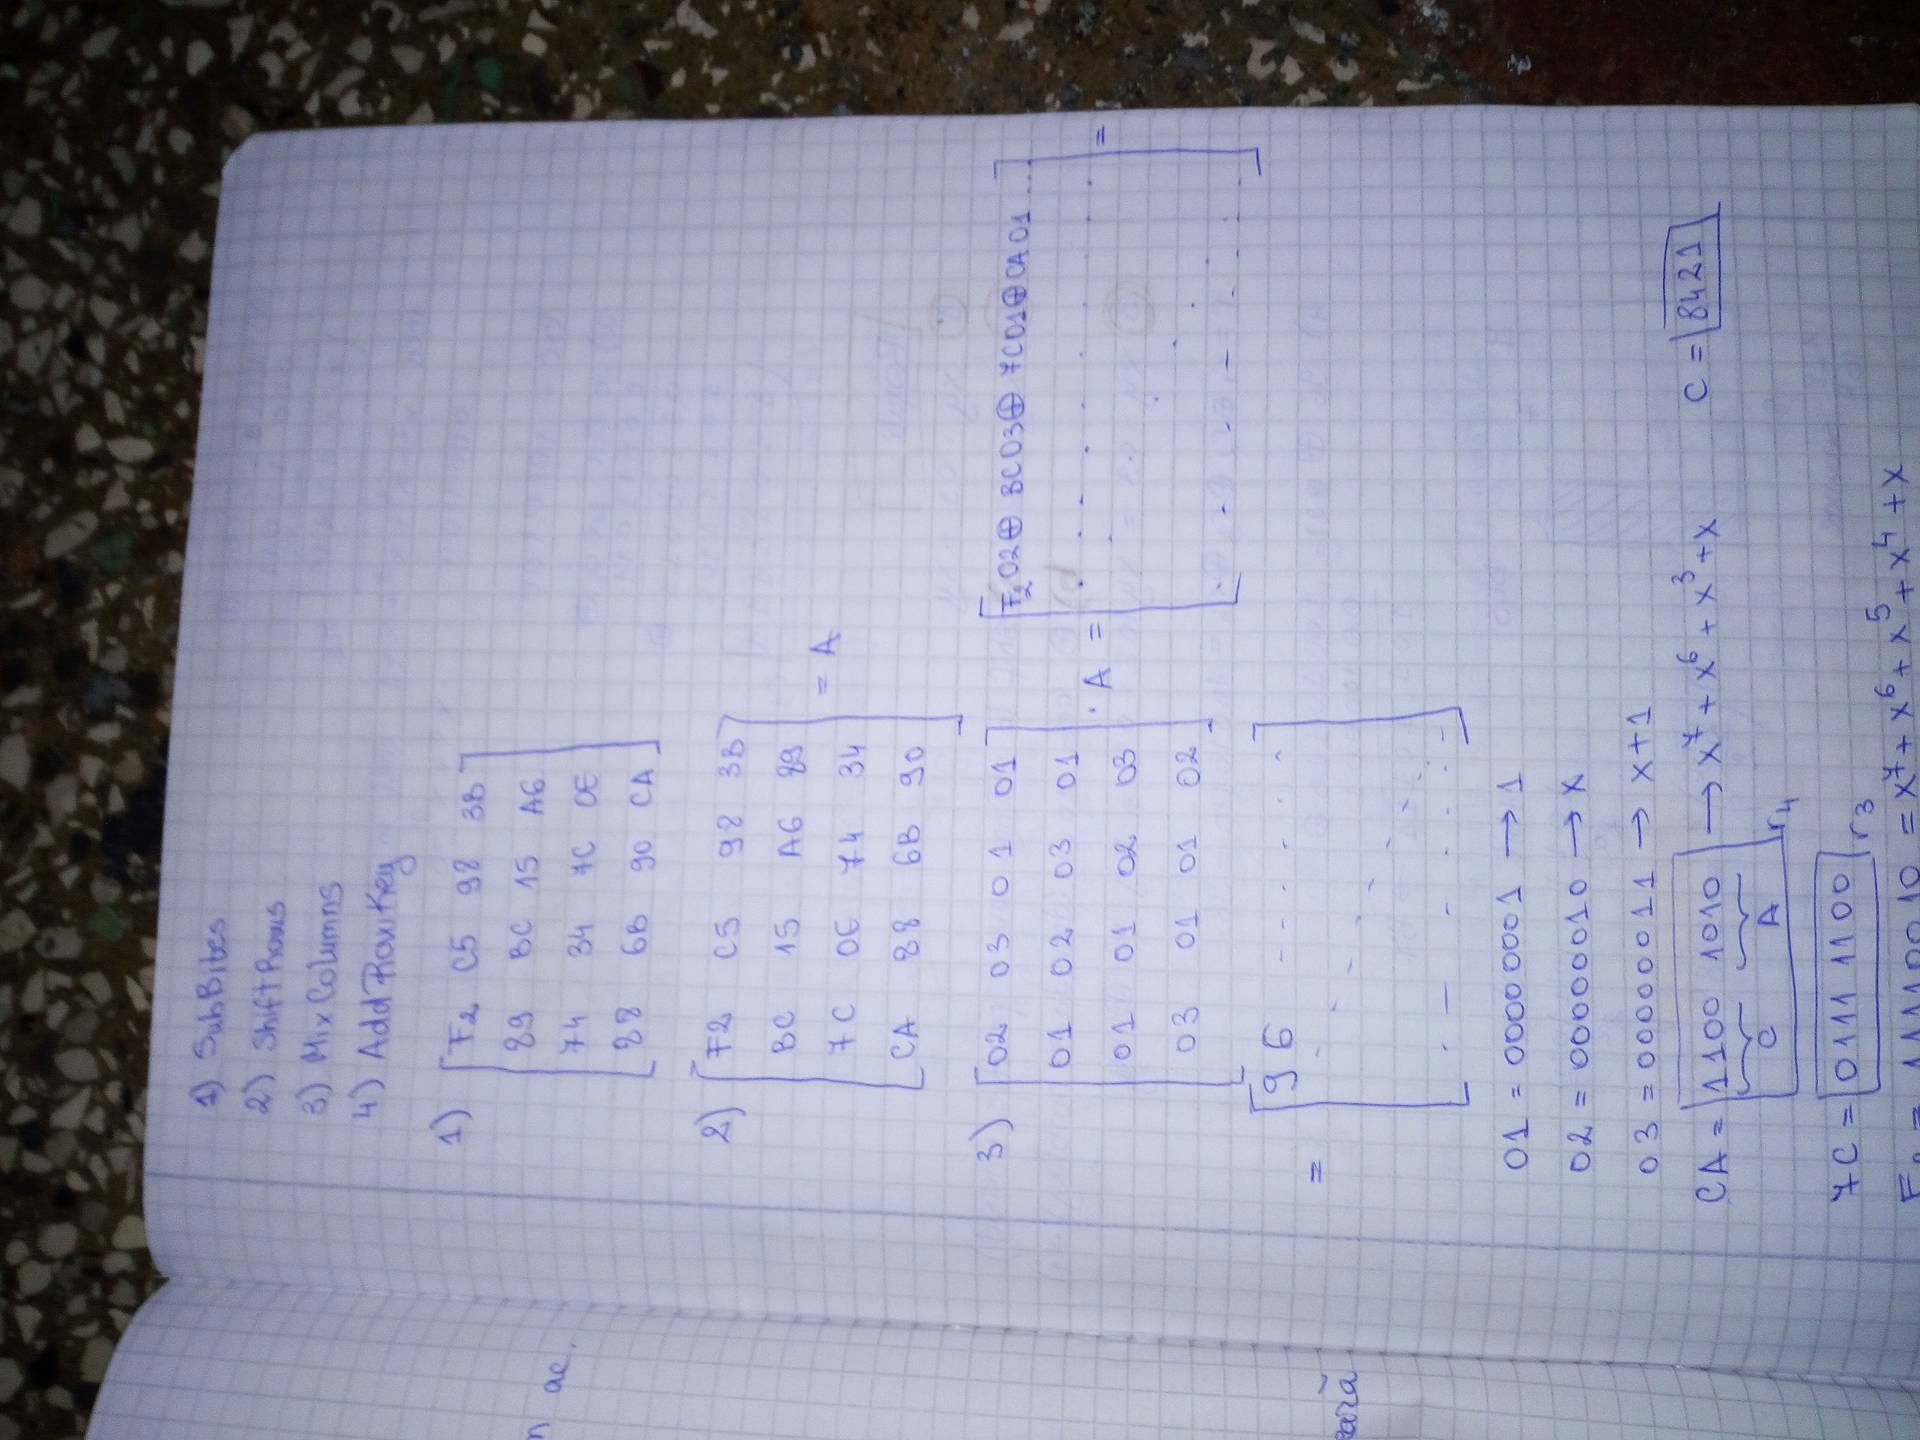 1) SubBites
2) ShiftRows
3) MixColumns
4) AddRowKey
n ac.
1) [ F2 C5 98 3B
89 BC 15 A6
74 34 7C 0E
88 6B 90 CA ]
2) [ F2 C5 98 3B
BC 15 A6 89
7C 0E 74 34
CA 88 6B 90 ] = A
3) [ 02 03 01 01
01 02 03 01
01 01 02 03
03 01 01 02 ] · A = [ F2 02 ⊕ BC 03 ⊕ 7C 01 ⊕ CA 01 ... ] =
= [ 96 ...... ]
01 = 00000001 → 1
02 = 00000010 → x
03 = 00000011 → x+1
CA = 1100 1010 r4 → x⁷ + x⁶ + x³ + x
C A
C = 8421
7C = 0111 1100 r3
F2 = 11110010 = x⁷ + x⁶ + x⁵ + x⁴ + x